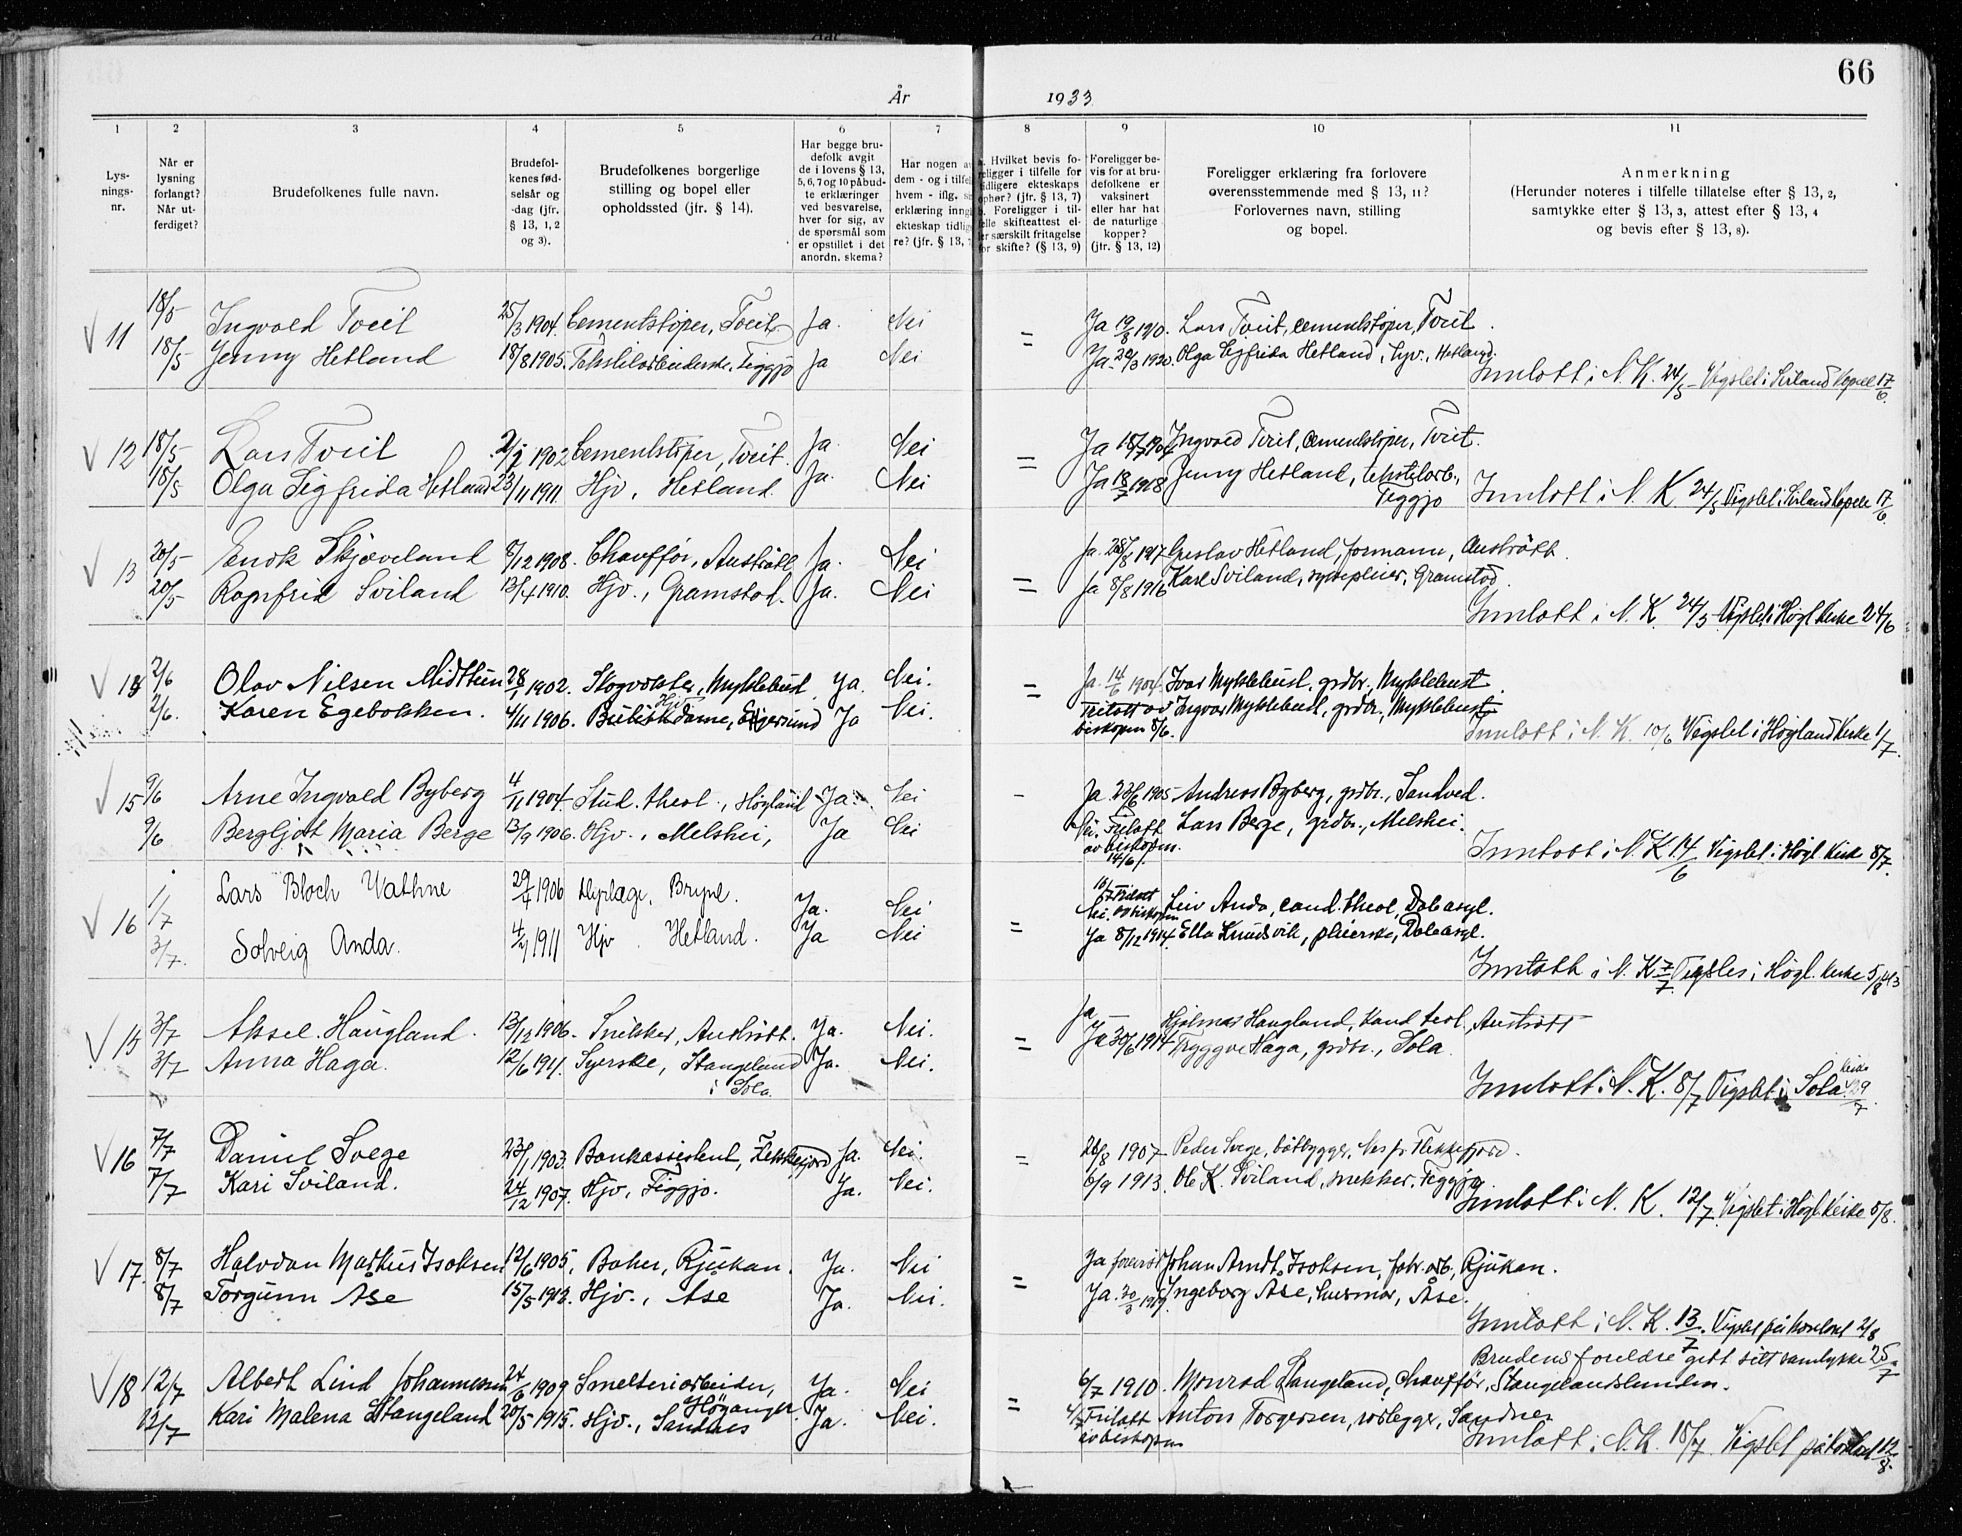 66
År 1933
1 2 3 4 5 6 7 8 9 10 11
Lysnings-nr.
Når er lysning forlangt? Når utferdiget?
Brudefolkenes fulle navn.
Brudefolkenes fødselsår og -dag (jfr. § 13, 1, 2 og 3).
Brudefolkenes borgerlige stilling og bopel eller opholdssted (jfr. § 14).
Har begge brudefolk avgit de i lovens § 13, 5, 6, 7 og 10 påbudte erklæringer ved besvarelse, hver for sig, av de spørsmål som er opstillet i det anordn. skema?
Har nogen a
dem - og i tilfe
hvem - iflg.
erklæring inng
ekteskap tidlig
re? (jfr. § 13,
Hvilket bevis fo-
religger i tilfelle for
tidligere ekteskaps
ophør? (jfr. § 13, 7)
Foreligger i til-
felle skifteattest el-
ler særskilt fritagelse
for skifte? (§ 13, 9)
Foreligger bevis for at brudefolkene er vaksinert eller har hat de naturlige kopper? (jfr. § 13, 12)
Foreligger erklæring fra forlovere overensstemmende med § 13, 11? Forlovernes navn, stilling og bopel.
Anmerkning
(Herunder noteres i tilfelle tillatelse efter § 13, 2, samtykke efter § 13, 3, attest efter § 13, 4 og bevis efter § 13, 8).
11 18/5 Ingvald Tveit 25/3 1904. Cementstøper, Tveit Ja. Nei = Ja 19/8 1920. Lars Tveit, cementstøper, Tveit.
18/5 Jenny Hetland 18/8 1905. Tekstilarbeiderske, Figgjo Ja Nei Ja 1920. Olga Sigfrida Hetland, hjv., Hetland.
Innlatt i N. K. 24/5 Vigslet i Sviland kapell 17/6.
12 18/5 Lars Tveit 1902 Cementstøper, Tveit. Ja. Nei = Ja Ingvald Tveit, Cementstøper, Tveit.
18/5 Olga Sigfrida Hetland 23/11 1911. Hjv., Hetland. Ja. Nei Ja 1918 Jenny Hetland, tekstilarb., Figgjo
Innlatt i N. K 24/5 Vigslet i Sviland kapell 17/6.
13 20/5 Enok Skjæveland 8/12 1908. Chauffør, Austrått Ja. Nei Ja. 1917 Gustav Hetland, formann, Austrått.
20/5 Ragnfrid Sviland 13/4 1910. Hjv., Gramstad. Ja. Nei = Ja 8/8 1916 Karl Sviland, Gramstad.
Innlatt i N. K. 24/5 Vigslet i Høgl. kirke 24/6
14 2/6 Olav Nilsen Midttun 1902. Skogvokter, Myklebust Ja. Nei. = Ja. 14/6 1904. Ivar Myklebust, grdbr., Myklebust.
2/6. Karen Egebakken. 4/11 1906. Hjv. Egersund Ja Nei. Fritatt av biskopen 8/6. Ingvar Myklebust, grdbr., Myklebust
Innlatt i N. K. 10/6 Vigslet i Høyland kirke 1/7.
15 9/6 Arne Ingvald Byberg 4/11 1904. Stud. theol., Høyland Ja. Nei - Ja 23/6 1905 Andreas Byberg, grdbr., Sandved.
9/6 Bergljot Maria Berge 13/9 1906. Hjv., Melshei, Ja Nei Nei. Fritatt av biskopen. 14/6. Lars Berge, grdbr., Melshei.
Innlatt i N. K 14/6 Vigslet i Høgl. kirke 8/7.
16 1/7 Lars Bloch Vathne 29/4 1906 Dyrlæge, Bryne. Ja. Nei Nei. Fritatt av biskopen Leiv Anda, cand. theol, Daleasyl.
3/7. Solveig Anda. 1911 Hjv. Hetland. Ja Nei = Ja 8/12 1914. Ella Knudsvik, pleierske, Daleasyl.
Innlatt i N. K 7/7. Vigslet i Høgl. kirke 5/8
15 3/7 Aksel Haugland. 13/12 1906. Snikker, Austrått. Ja. Nei. Ja Hjalmar Haugland, kand. teol, Austrått
3/7 Anna Haga. 12/6 1911. Syerske, Stangeland i Sola. Ja. Nei. = Ja 30/6 1914 Tryggve Haga, grdbr., Sola.
Innlatt i N. K. 8/7 Vigslet i Sola kirke 29/7.
16 7/7 Daniel Svege 23/1 1903. Bankassistent, Flekkefjord Ja. Nei. = 26/8 1907 Peder Svege, båtbygger, Nes pr Flekkefjord.
7/7 Kari Sviland. 24/12 1907. Hjv., Figgjo. Ja. Nei. 6/9 1913. Ole K. Sviland, snekker, Figgjo.
Innlatt i N. K. 12/7. Vigslet i Høgl. kirke 5/8.
17. 8/7 Halvdan Markus Isaksen 12/6 1905. Baker, Rjukan. Ja. Nei Ja forevist Johan Arndt Isaksen, fabr. arb, Rjukan.
8/7 Torgunn Åse 15/5 1912. Hjv., Åse Ja. Nei. = Ja. 1919. Ingeborg Åse, husmor, Åse.
Innlatt i N. K. 13/7. Vigslet på kontoret 2/8
18 12/7 Albert Lind Johannessen 24/6 1909 Smelteriarbeider, Høyanger. Ja. Nei 6/7 1910. Monrad Stangeland, chauffør, Stangelandslunden.
Brudens foreldre gitt sitt samtykke 25/7
12/7 Kari Malena Stangeland 20/5 1915. Hjv., Sandnes Ja. Nei. = Fritatt av biskopen Anton Torgersen, rørlegger, Sandnes
Innlatt i N. K. 18/7. Vigslet på kontoret 12/8.